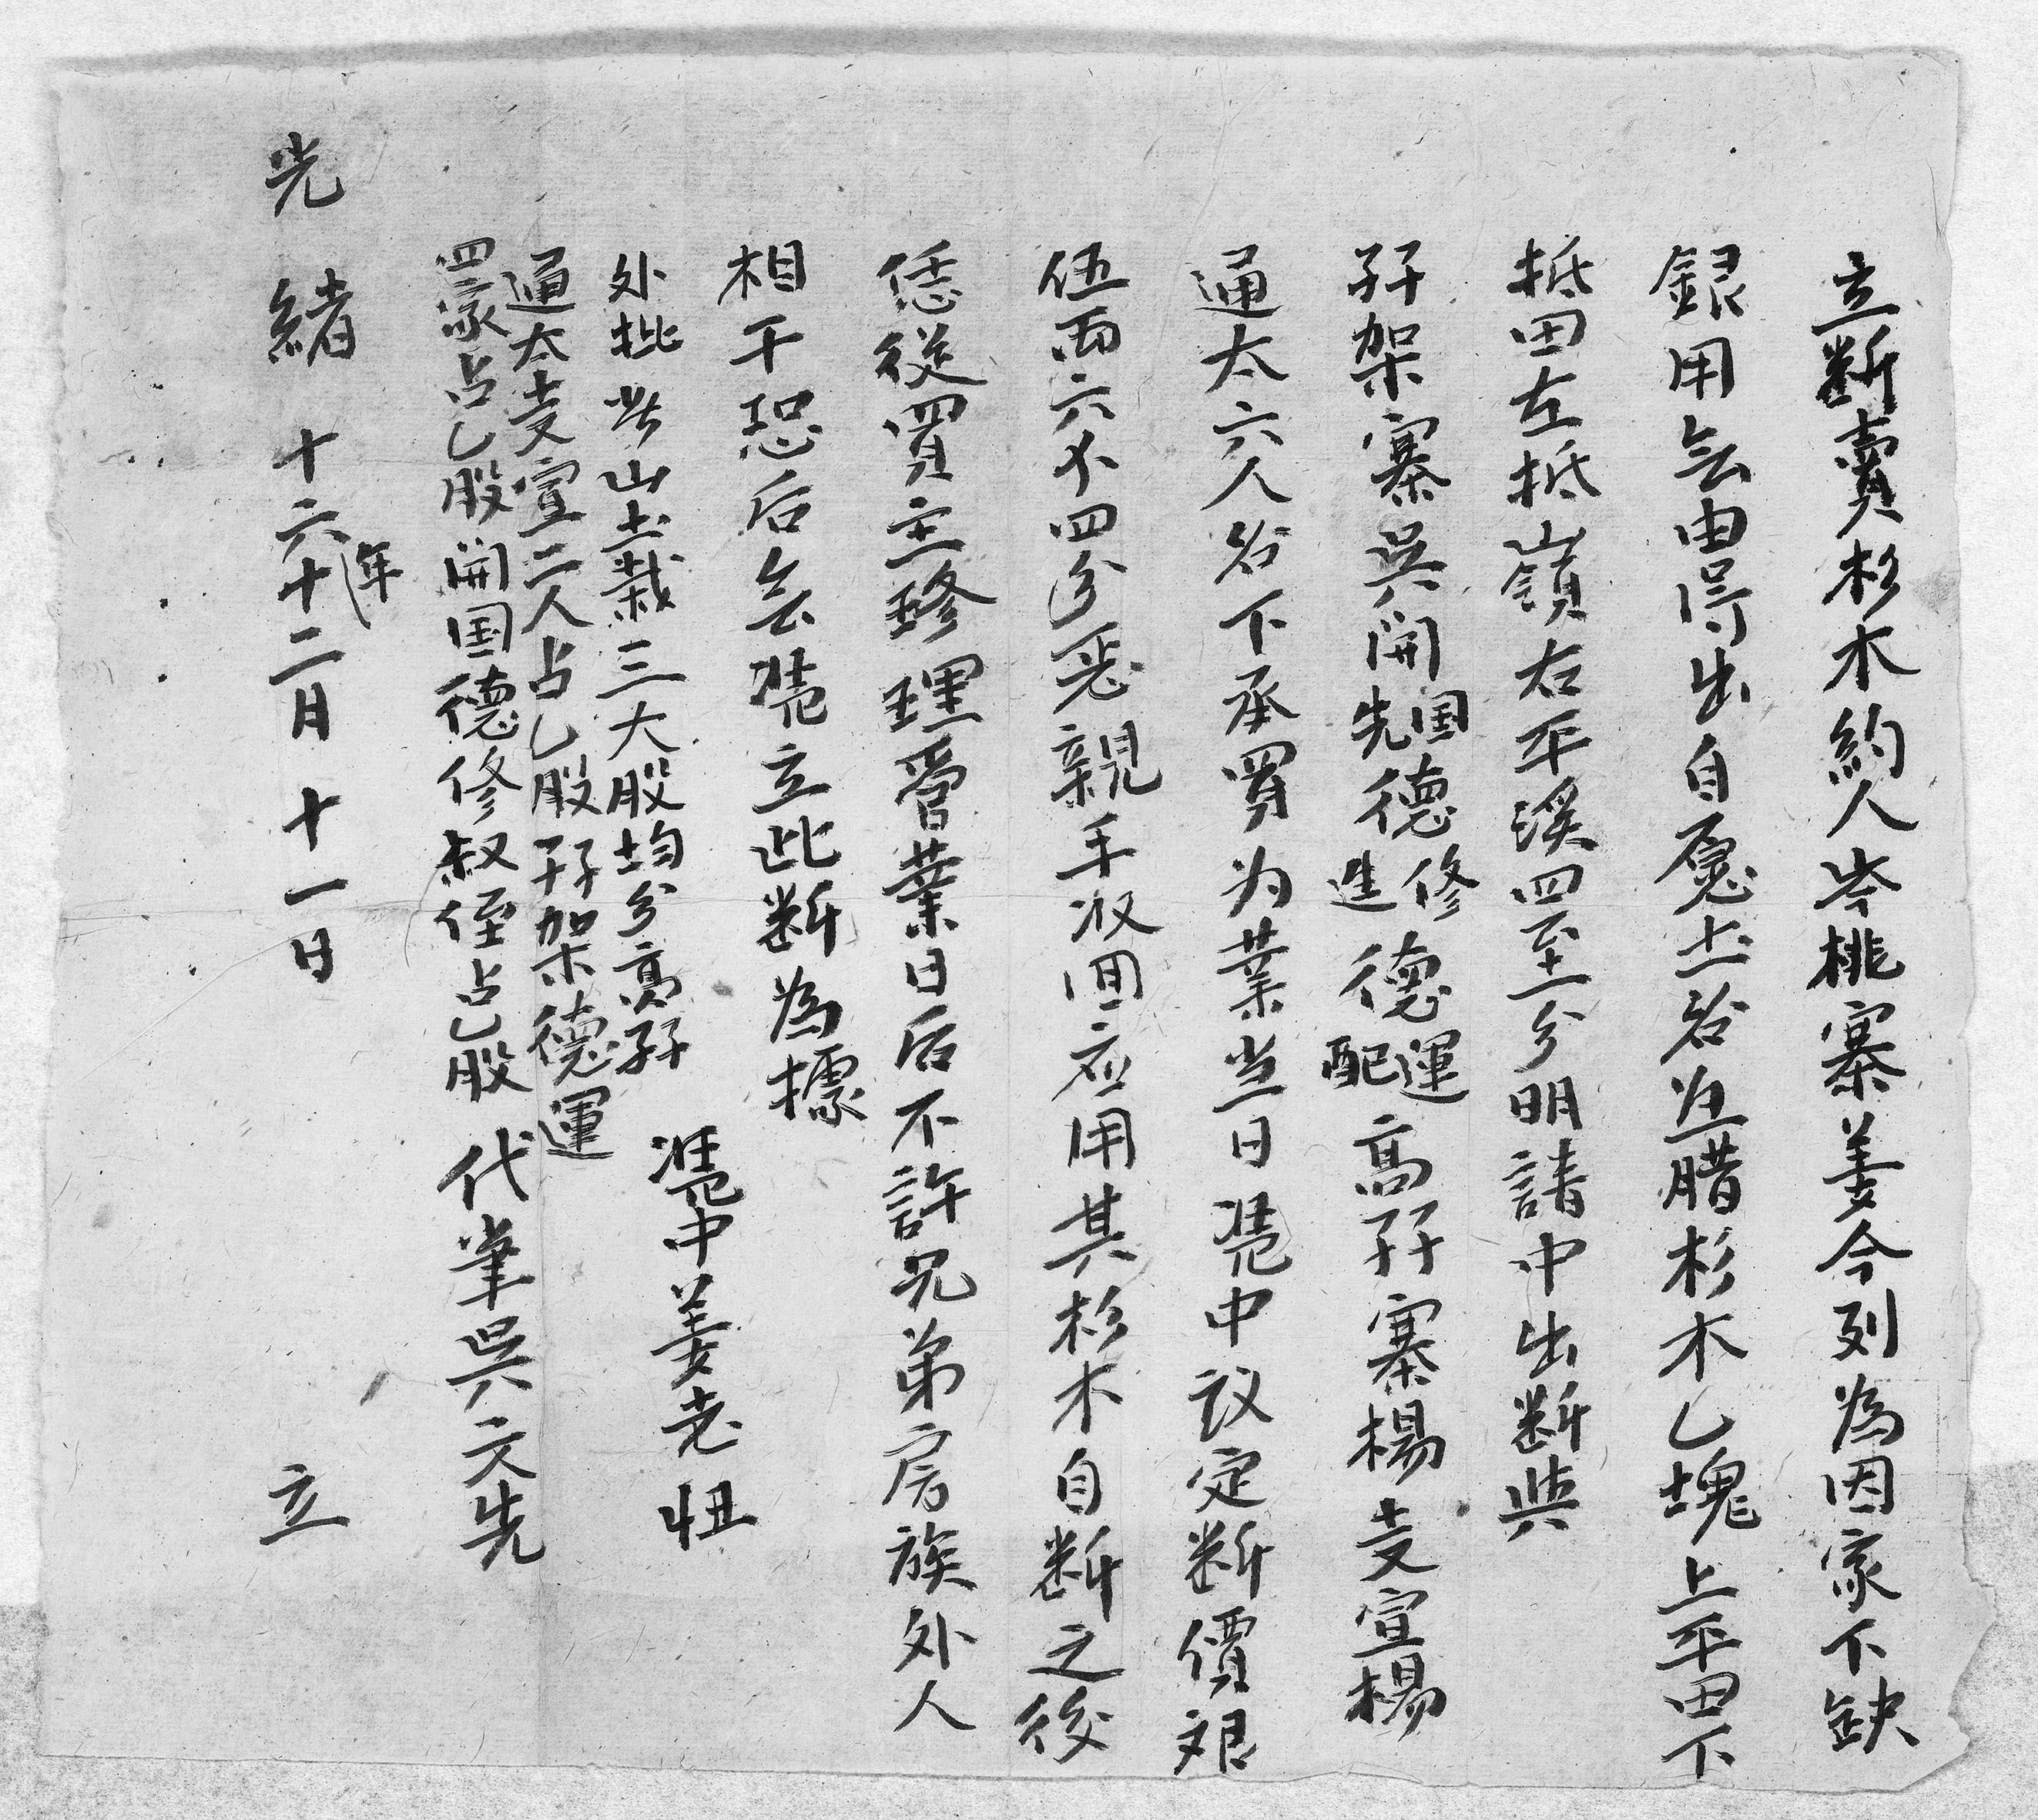 立斷賣杉木約人岑桃寨姜今列為因家下缺
銀用無由得出自愿土名迫腊杉木乙塊上平田下
抵田左抵嶺右平溪四至分明請中出断與
孖架寨吳開国先德修進德運配高孖寨楊支宣楊
通太六人名下承買为業当日凴中议定断價艮
伍両六 四分 親手收囬应用其杉木自断之後
恁從買主修理管業日后不許兄弟房族外人
相干恐后無凴立此断為據
外批此山土栽三大股均分高孖
通太支宣二人占乙股孖架德運
四家占乙股開国德修叔侄占乙股 代筆吳文先
凴中姜老
光緒十六年十二月十一日 立